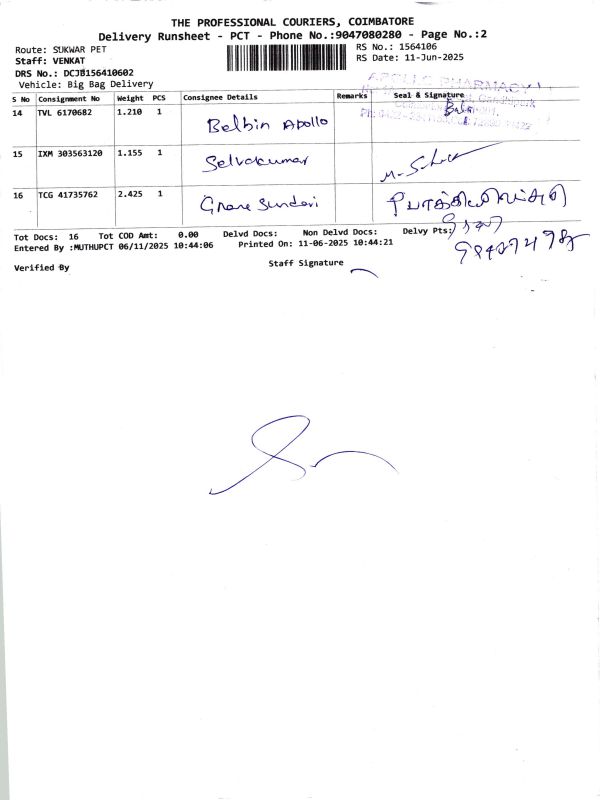 THE PROFESSIONAL COURIERS, COIMBATORE
Delivery Runsheet - PCT - Phone No.:9047080280 - Page No.:2
Route: SUKWAR PET
RS No.: 1564106
Staff: VENKAT
RS Date: 11-Jun-2025
DRS No.: DCJB156410602
Vehicle: Big Bag Delivery
APOLLO PHARMACY
S No Consignment No Weight PCS Consignee Details Remarks Seal & Signature
14 TVL 6170682 1.210 1 Belbin Apollo
15 IXM 303563120 1.155 1 Selvakumar
16 TCG 41735762 2.425 1 Gnana Sundari
Tot Docs: 16 Tot COD Amt: 0.00 Delvd Docs: Non Delvd Docs: Delvy Pts:
Entered By :MUTHUPCT 06/11/2025 10:44:06 Printed On: 11-06-2025 10:44:21
Verified By
Staff Signature